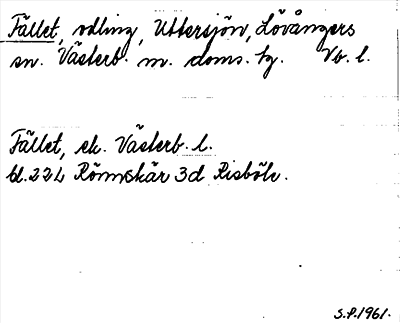 Fället, odling, Uttersjön, Lövångers
sn. Västerb. m. doms. tg. Vb. l.
Fället, ek. Västerb. l.
bl. 22L Rönnskär 3d Risböle.
S.P. 1961.